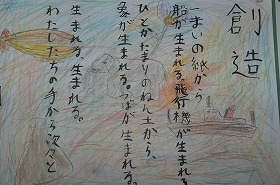 創造
一まいの紙から
船が生まれる。飛行機が生まれる。
ひとかたまりのねん土から、
象が生まれる。つぼが生まれる。
生まれる、生まれる。
わたしたちの手から次々と